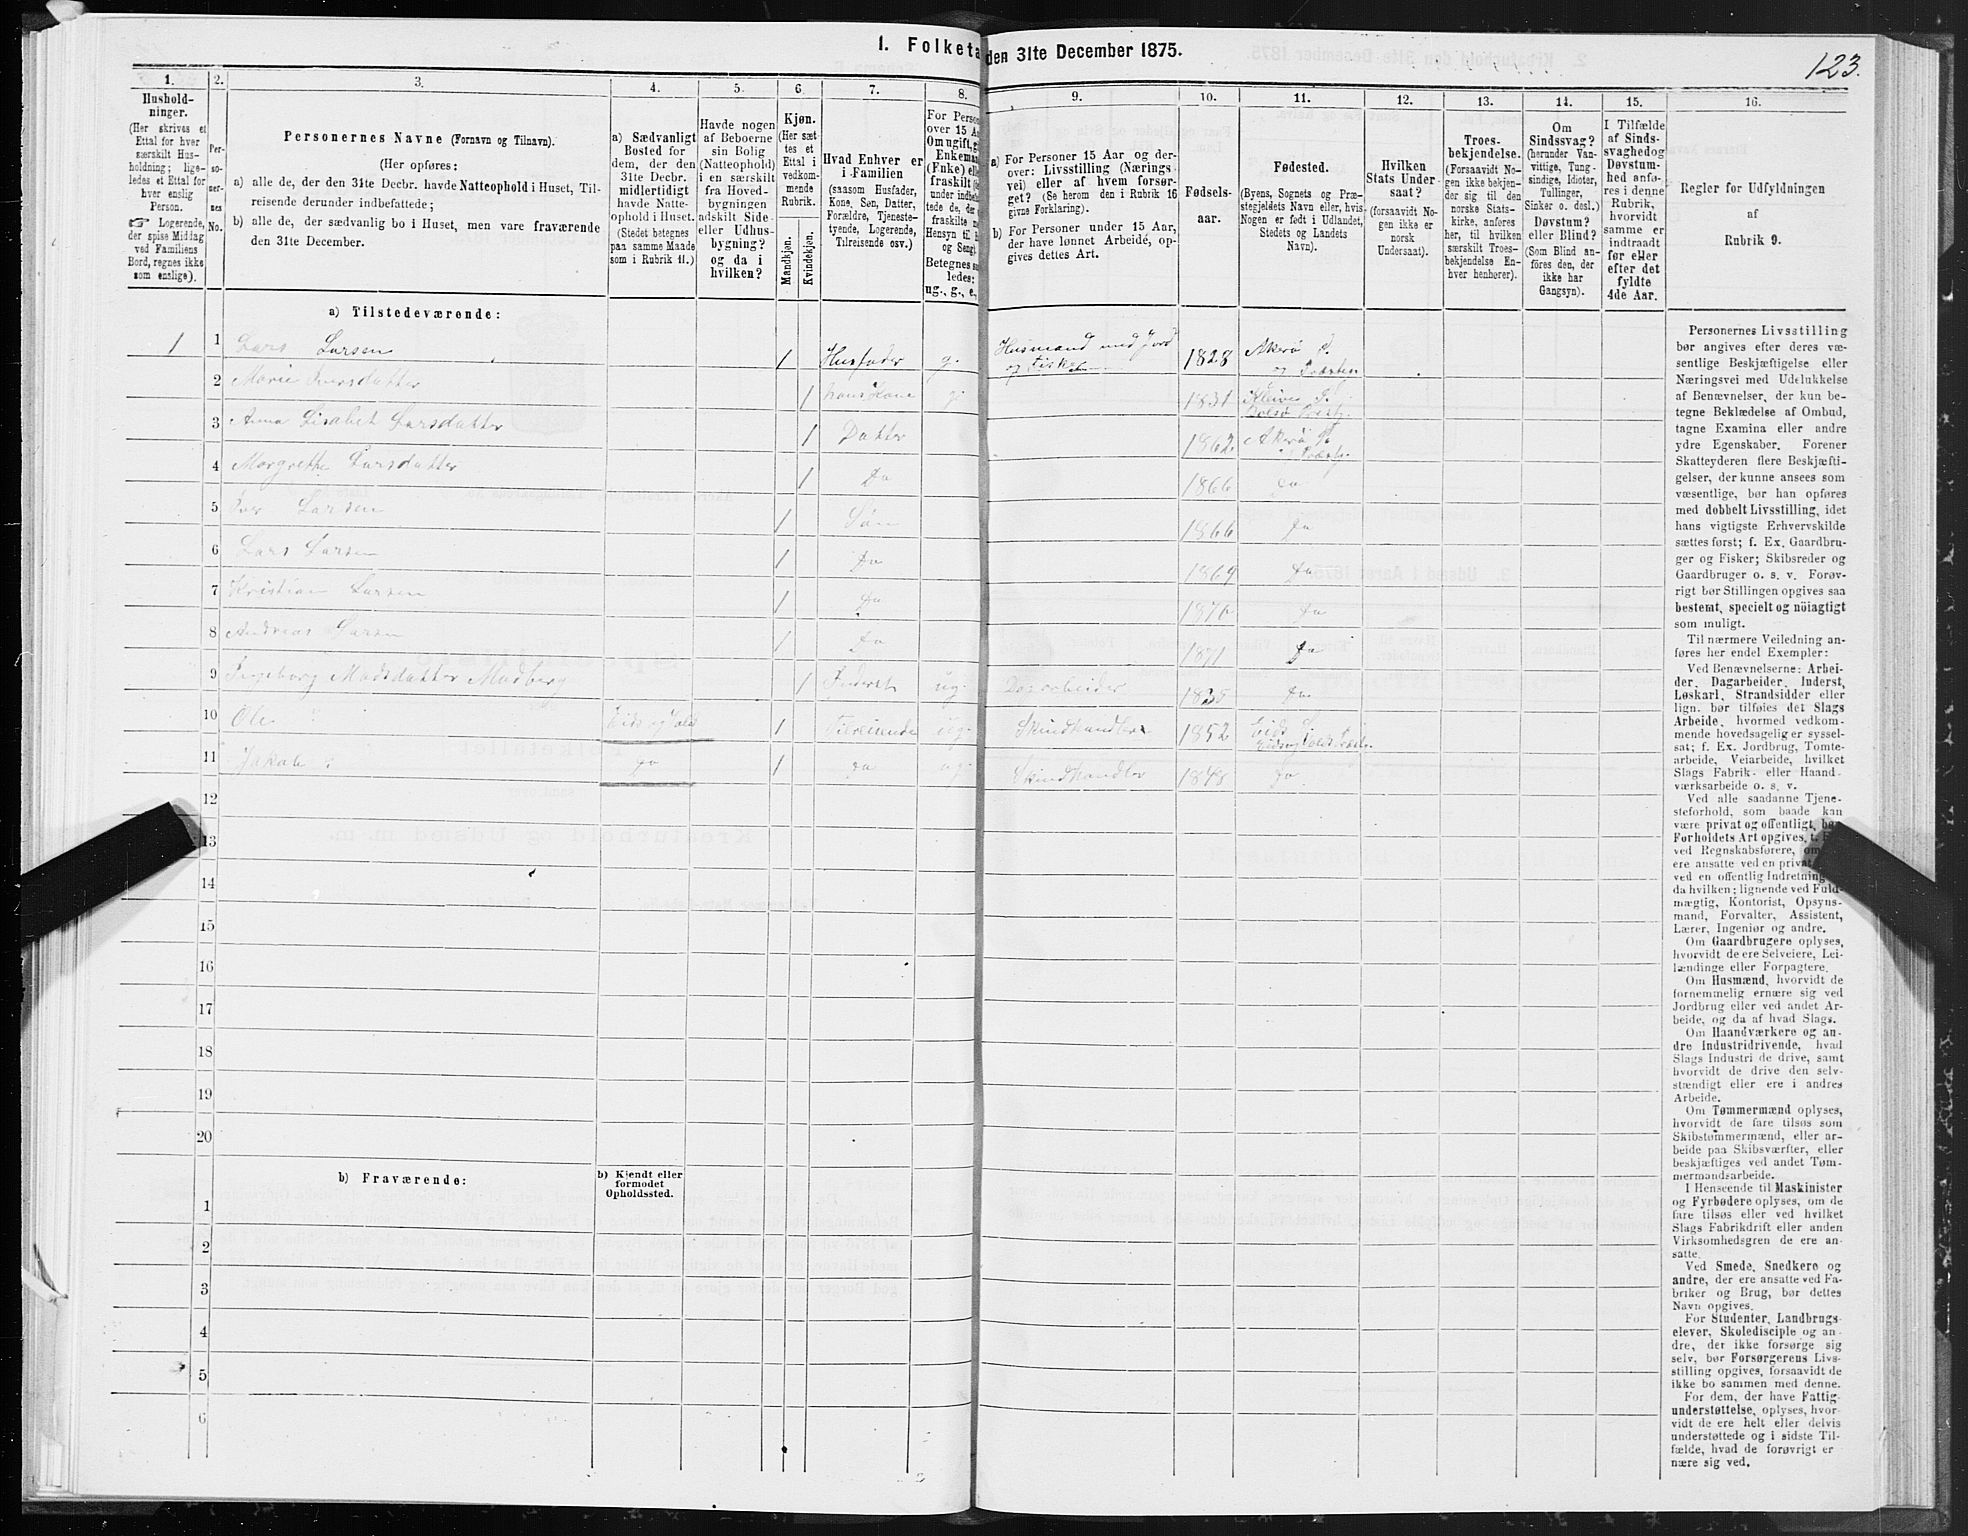 1. Folketa
den 31te December 1875.
123.
1.
2.
3.
4.
5.
6.
7.
8.
9.
10.
11.
12.
13.
14.
15.
16.
Hushold-
ninger.
(Her skrives et
Ettal for hver
særskilt Hus-
holdning; lige-
ledes et Ettal for
hver enslig
Person.
☞ Logerende,
der spise Middag
ved Familiens
Bord, regnes ikke
som enslige).
Per-
so-
ner-
nes
No.
Personernes Navne (Fornavn og Tilnavn).
(Her opføres:
a) alle de, der den 31te Decbr. havde Natteophold i Huset, Til-
reisende derunder indbefattede;
b) alle de, der sædvanlig bo i Huset, men vare fraværende
den 31te December.
a) Sædvanligt
Bosted for
dem, der den
31te Decbr.
midlertidigt
havde Natte-
ophold i Huset.
(Stedet betegnes
paa samme Maade
som i Rubrik 11.)
Havde nogen
af Beboerne
sin Bolig
(Natteophold)
i en særskilt
fra Hoved-
bygningen
adskilt Side-
eller Udhus-
bygning?
og da i
hvilken?
Kjøn.
(Her sæt-
tes et
Ettal i
vedkom-
mende
Rubrik.
Mandkjøn.
Kvindekjøn.
Hvad Enhver er
i Familien
(saasom Husfader,
Kone, Søn, Datter,
Forældre, Tjeneste-
tyende, Logerende,
Tilreisende osv.)
For Perso
over 15 Aa
Om ugift, g
Enkeman
(Enke) elle
fraskilt (s
under indbe
tede de, de
fraskilte m
Hensyn til
og Seng).
Betegnes sa
ledes:
ug., g., e.,
a) For Personer 15 Aar og der-
over: Livsstilling (Nærings-
vei) eller af hvem forsør-
get? (Se herom den i Rubrik 16
givne Forklaring).
b) For Personer under 15 Aar,
der have lønnet Arbeide, op-
gives dettes Art.
Fødsels-
aar.
Fødested.
(Byens, Sognets og Præ-
stegjeldets Navn eller, hvis
Nogen er født i Udlandet,
Stedets og Landets
Navn).
Hvilken
Stats Under-
saat?
(forsaavidt No-
gen ikke er
norsk
Undersaat).
Troes-
bekjendelse.
(Forsaavidt No-
gen ikke bekjen-
der sig til den
norske Stats-
kirke, anføres
her, til hvilken
særskilt Troes-
bekjendelse En-
hver henhører).
Om
Sindssvag?
(herunder Van-
vittige, Tung-
sindige, Idioter,
Tullinger,
Sinker o. desl.)
Døvstum?
eller Blind?
(Som Blind an-
føres den, der
ikke har
Gangsyn).
I Tilfælde
af Sinds-
svaghedog
Døvstum-
hed anfø-
res i denne
Rubrik,
hvorvidt
samme er
indtraadt
før eller
efter det
fyldte
4de Aar.
Regler for Udfyldningen
af
Rubrik 9.
a) Tilstedeværende:
1 1 Lars Larsen 1 Husfader g. Husmand med Jord og Fisker 1828 Akerö S. og Præsteg.
2 Marie Iversdatter 1 hans Kone g. 1831 Kleive S. Bolsö Prestg.
3 Anna Lisabet Larsdatter 1 Datter 1862 Akerö S. og Præstg.
4 Margrethe Larsdatter 1 Do 1866 Do
5 Iver Larsen 1 Søn 1866 Do
6 Lars Larsen 1 Do 1869 Do
7 Kristian Larsen 1 Do 1870 Do
8 Andreas Larsen 1 Do 1871 Do
9 Ingeborg Madsdatter Madberg 1 Inderst ug. Dagarbeider 1835 Do
10 Ole 1 Tilreisende ug. Skindhandler 1852 Eids
11 Jakob ? Do 1 Do ug. Skindhandler 1848 Do
12
13
14
15
16
17
18
19
20
b) Fraværende:
b) Kjendt eller
formodet
Opholdssted.
1
2
3
4
5
6
Personernes Livsstilling
bør angives efter deres væ-
sentlige Beskjæftigelse eller
Næringsvei med Udelukkelse
af Benævnelser, der kun be-
tegne Beklædelse af Ombud,
tagne Examina eller andre
ydre Egenskaber. Forener
Skatteyderen flere Beskjæfti-
gelser, der kunne ansees som
væsentlige, bør han opføres
med dobbelt Livsstilling, idet
hans vigtigste Erhvervskilde
sættes først; f. Ex. Gaardbru-
ger og Fisker; Skibsreder og
Gaardbruger o. s. v. Forøv-
rigt bør Stillingen opgives saa
bestemt, specielt og nöiagtigt
som muligt.
Til nærmere Veiledning an-
føres her endel Exempler:
Ved Benævnelserne: Arbei-
der, Dagarbeider, Inderst,
Løskarl, Strandsidder eller
lign. bør tilføies det Slags
Arbeide, hvormed vedkom-
mende hovedsagelig er syssel-
sat; f. Ex. Jordbrug, Tomte-
arbeide, Veiarbeide, hvilket
Slags Fabrik- eller Haand-
værksarbeide o. s. v.
Ved alle saadanne Tjene-
steforhold, som baade kan
være privat og offentligt, bør
Forholdets Art opgives, t.
ved Regnskabsførere, om
ere ansatte ved en privat
ved en offentlig Indretning
da hvilken; lignende ved Fuld-
mægtig, Kontorist, Opsyns-
mand, Forvalter, Assistent,
Lærer, Ingeniør og andre.
Om Gaardbrugere oplyses,
hvorvidt de ere Selveiere, Lei-
lændinge eller Forpagtere.
Om Husmænd, hvorvidt de
fornemmelig ernære sig ved
Jordbrug eller ved andet Ar-
beide, og da af hvad Slags.
Om Haandværkere og an-
dre Industridrivende, hvad
Slags Industri de drive, samt
hvorvidt de drive den selv-
stændigt eller ere i andres
Arbeide.
Om Tømmermænd oplyses,
hvorvidt de fare tilsøs som
Skibstømmermænd, eller ar-
beide paa Skibsværfter, eller
beskjæftiges ved andet Tøm-
mermandsarbeide.
I Henseende til Maskinister
og Fyrbødere oplyses, om de
fare tilsøs eller ved hvilket
Slags Fabrikdrift eller anden
Virksomhedsgren de ere an-
satte.
Ved Smede, Snedkere og
andre, der ere ansatte ved Fa-
briker og Brug, bør dettes
Navn opgives.
For Studenter, Landbrugs-
elever, Skoledisciple og an-
dre, der ikke forsørge sig
selv, bør Forsørgerens Livs-
stilling opgives, forsaavidt de
ikke bo sammen med denne.
For dem, der have Fattig-
understøttelse, oplyses, hvor-
vidt de ere helt eller delvis
understøttede og i sidste Til-
fælde, hvad de forøvrigt er
nære sig ved.